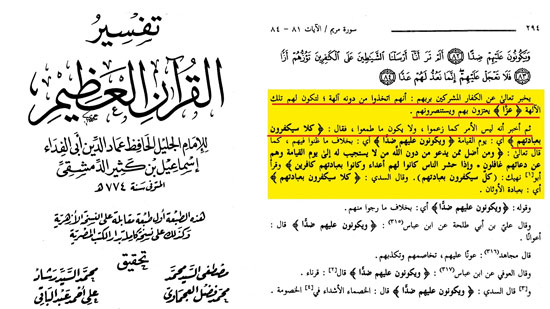 تفسير
القرآن العظيم
للإمام الجليل الحافظ عماد الدين أبي الفداء
إسماعيل بن كثير الدمشقي
المتوفى سنة ٧٧٤ هـ
هذه الطبعة أول طبعة مقابلة على النسخة الأزهرية
وكذلك على نسخة كاملة بدار الكتب المصرية
تحقيق
مصطفى السيد محمد
محمد السيد رشاد
محمد فضل العجماوي
علي أحمد عبد الباقي
٢٩٤
سورة مريم / الآيات ٨١ - ٨٤
وَيَكُونُونَ عَلَيْهِمْ ضِدًّا ﴿٨٢﴾ أَلَمْ تَرَ أَنَّا أَرْسَلْنَا الشَّيَاطِينَ عَلَى الْكَافِرِينَ تَؤُزُّهُمْ أَزًّا
﴿٨٣﴾ فَلَا تَعْجَلْ عَلَيْهِمْ إِنَّمَا نَعُدُّ لَهُمْ عَدًّا ﴿٨٤﴾
يخبر تعالى عن الكفار المشركين بربهم : أنهم اتخذوا من دونه آلهة ؛ لتكون لهم تلك
الآلهة ﴿ عزًّا ﴾ يعتزون بهم ويستنصرونهم .
ثم أخبر أنه ليس الأمر كما زعموا ، ولا يكون ما طمعوا ، فقال : ﴿ كلا سيكفرون
بعبادتهم ﴾ أي : يوم القيامة ﴿ ويكونون عليهم ضدًّا ﴾ أي : بخلاف ما ظنوا فيهم ، كما
قال تعالى : ﴿ ومن أضل ممن يدعو من دون الله من لا يستجيب له إلى يوم القيامة وهم
عن دعائهم غافلون * وإذا حشر الناس كانوا لهم أعداء وكانوا بعبادتهم كافرين ﴾ وقرأ
أبو نهيك : (كلٌّ سيكفرون بعبادتهم) . وقال السدي : ﴿ كلا سيكفرون بعبادتهم ﴾
أي : بعبادة الأوثان .
وقوله : ﴿ ويكونون عليهم ضدًّا ﴾ أي : بخلاف ما رجوا منهم .
وقال علي بن أبي طلحة عن ابن عباس (٣١٥) : ﴿ ويكونون عليهم ضدًّا ﴾ قال :
أعوانًا .
قال مجاهد (٣١٦) : عونًا عليهم ، تخاصمهم وتكذبهم .
وقال العوفي عن ابن عباس (٣١٧) : ﴿ ويكونون عليهم ضدًّا ﴾ قال [٢] : قرناء .
و [٣] قال السدي : ﴿ ويكونون عليهم ضدًّا ﴾ قال : الخصماء الأشداء في [٤] الخصومة .